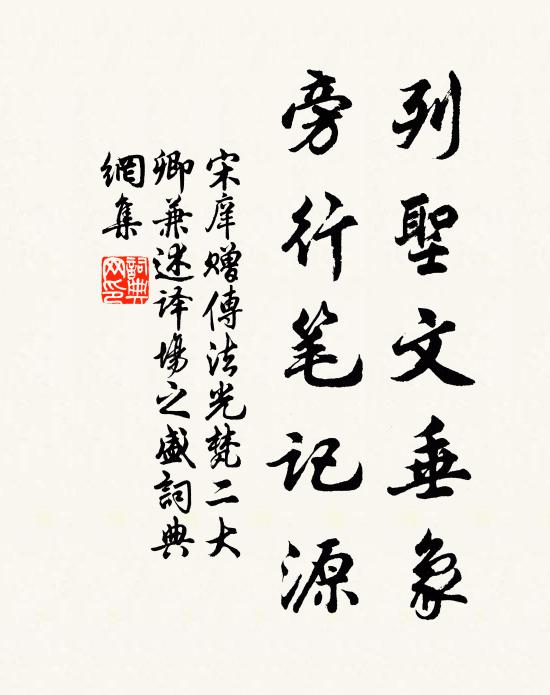 列聖文垂象
旁行笔记源
宋庠赠傳法光梵二大
卿兼述译場之盛詞典
網集
詞典網印